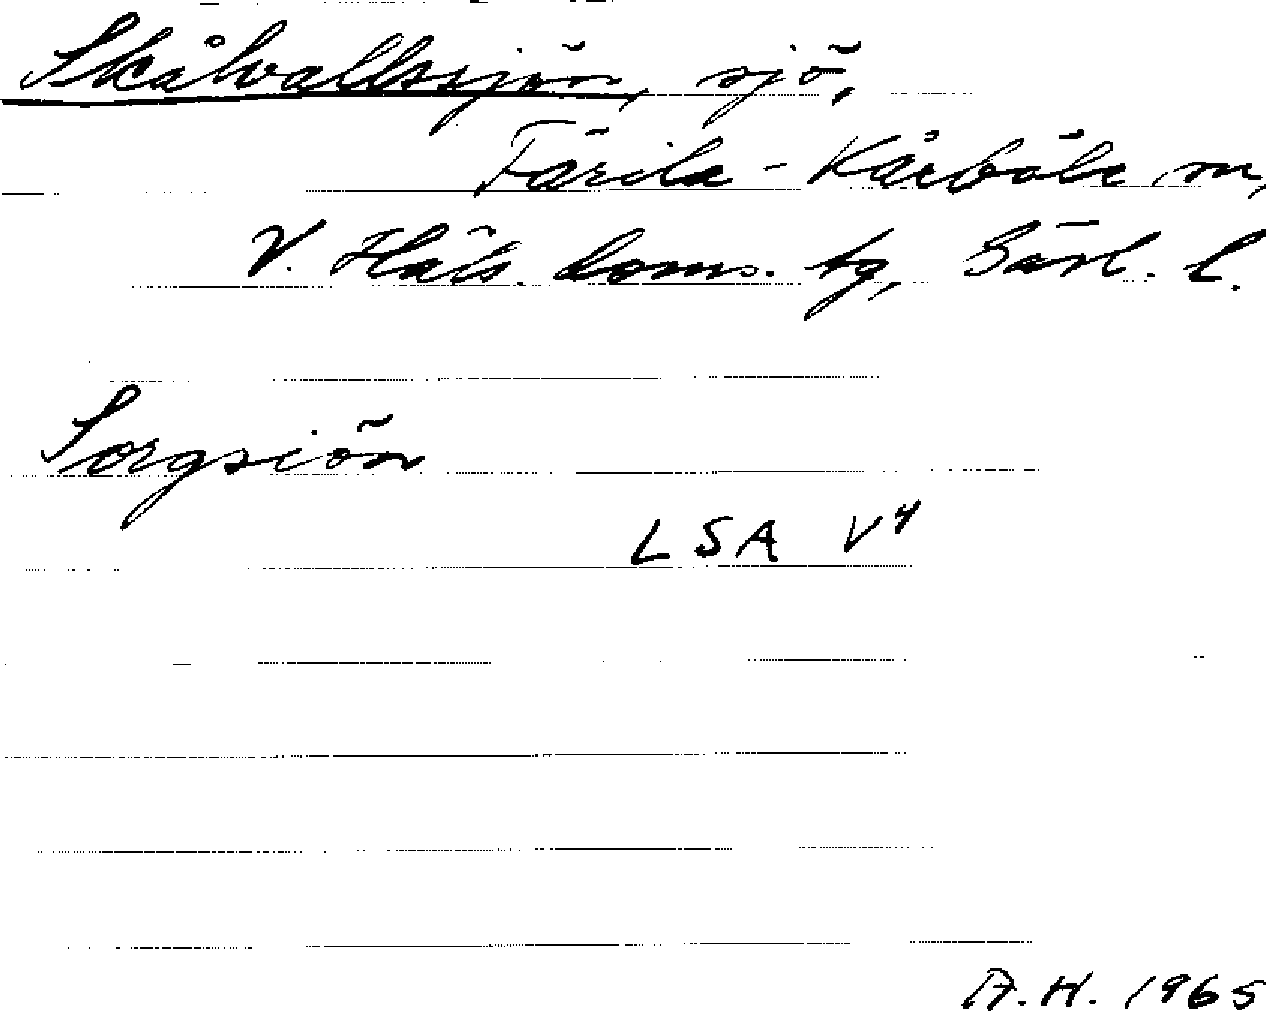 Skålvallsjön, sjö,
Färila - Kårböle sn,
V. Häls. doms. tg, Gävl. l.
Sorgsiön
LSA V4
A.H. 1965